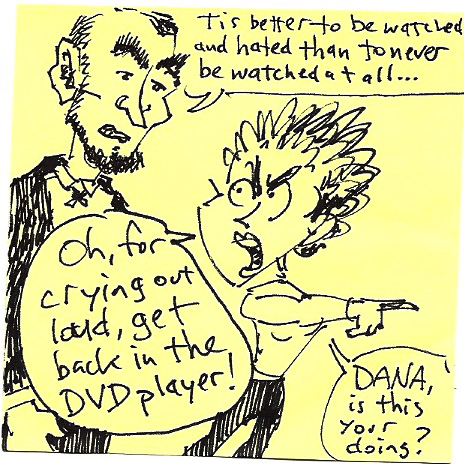 Tis better to be watched
and hated than to never
be watched at all...
Oh, for
crying out
loud, get
back in the
DVD player!
DANA,
is this
your
doing?